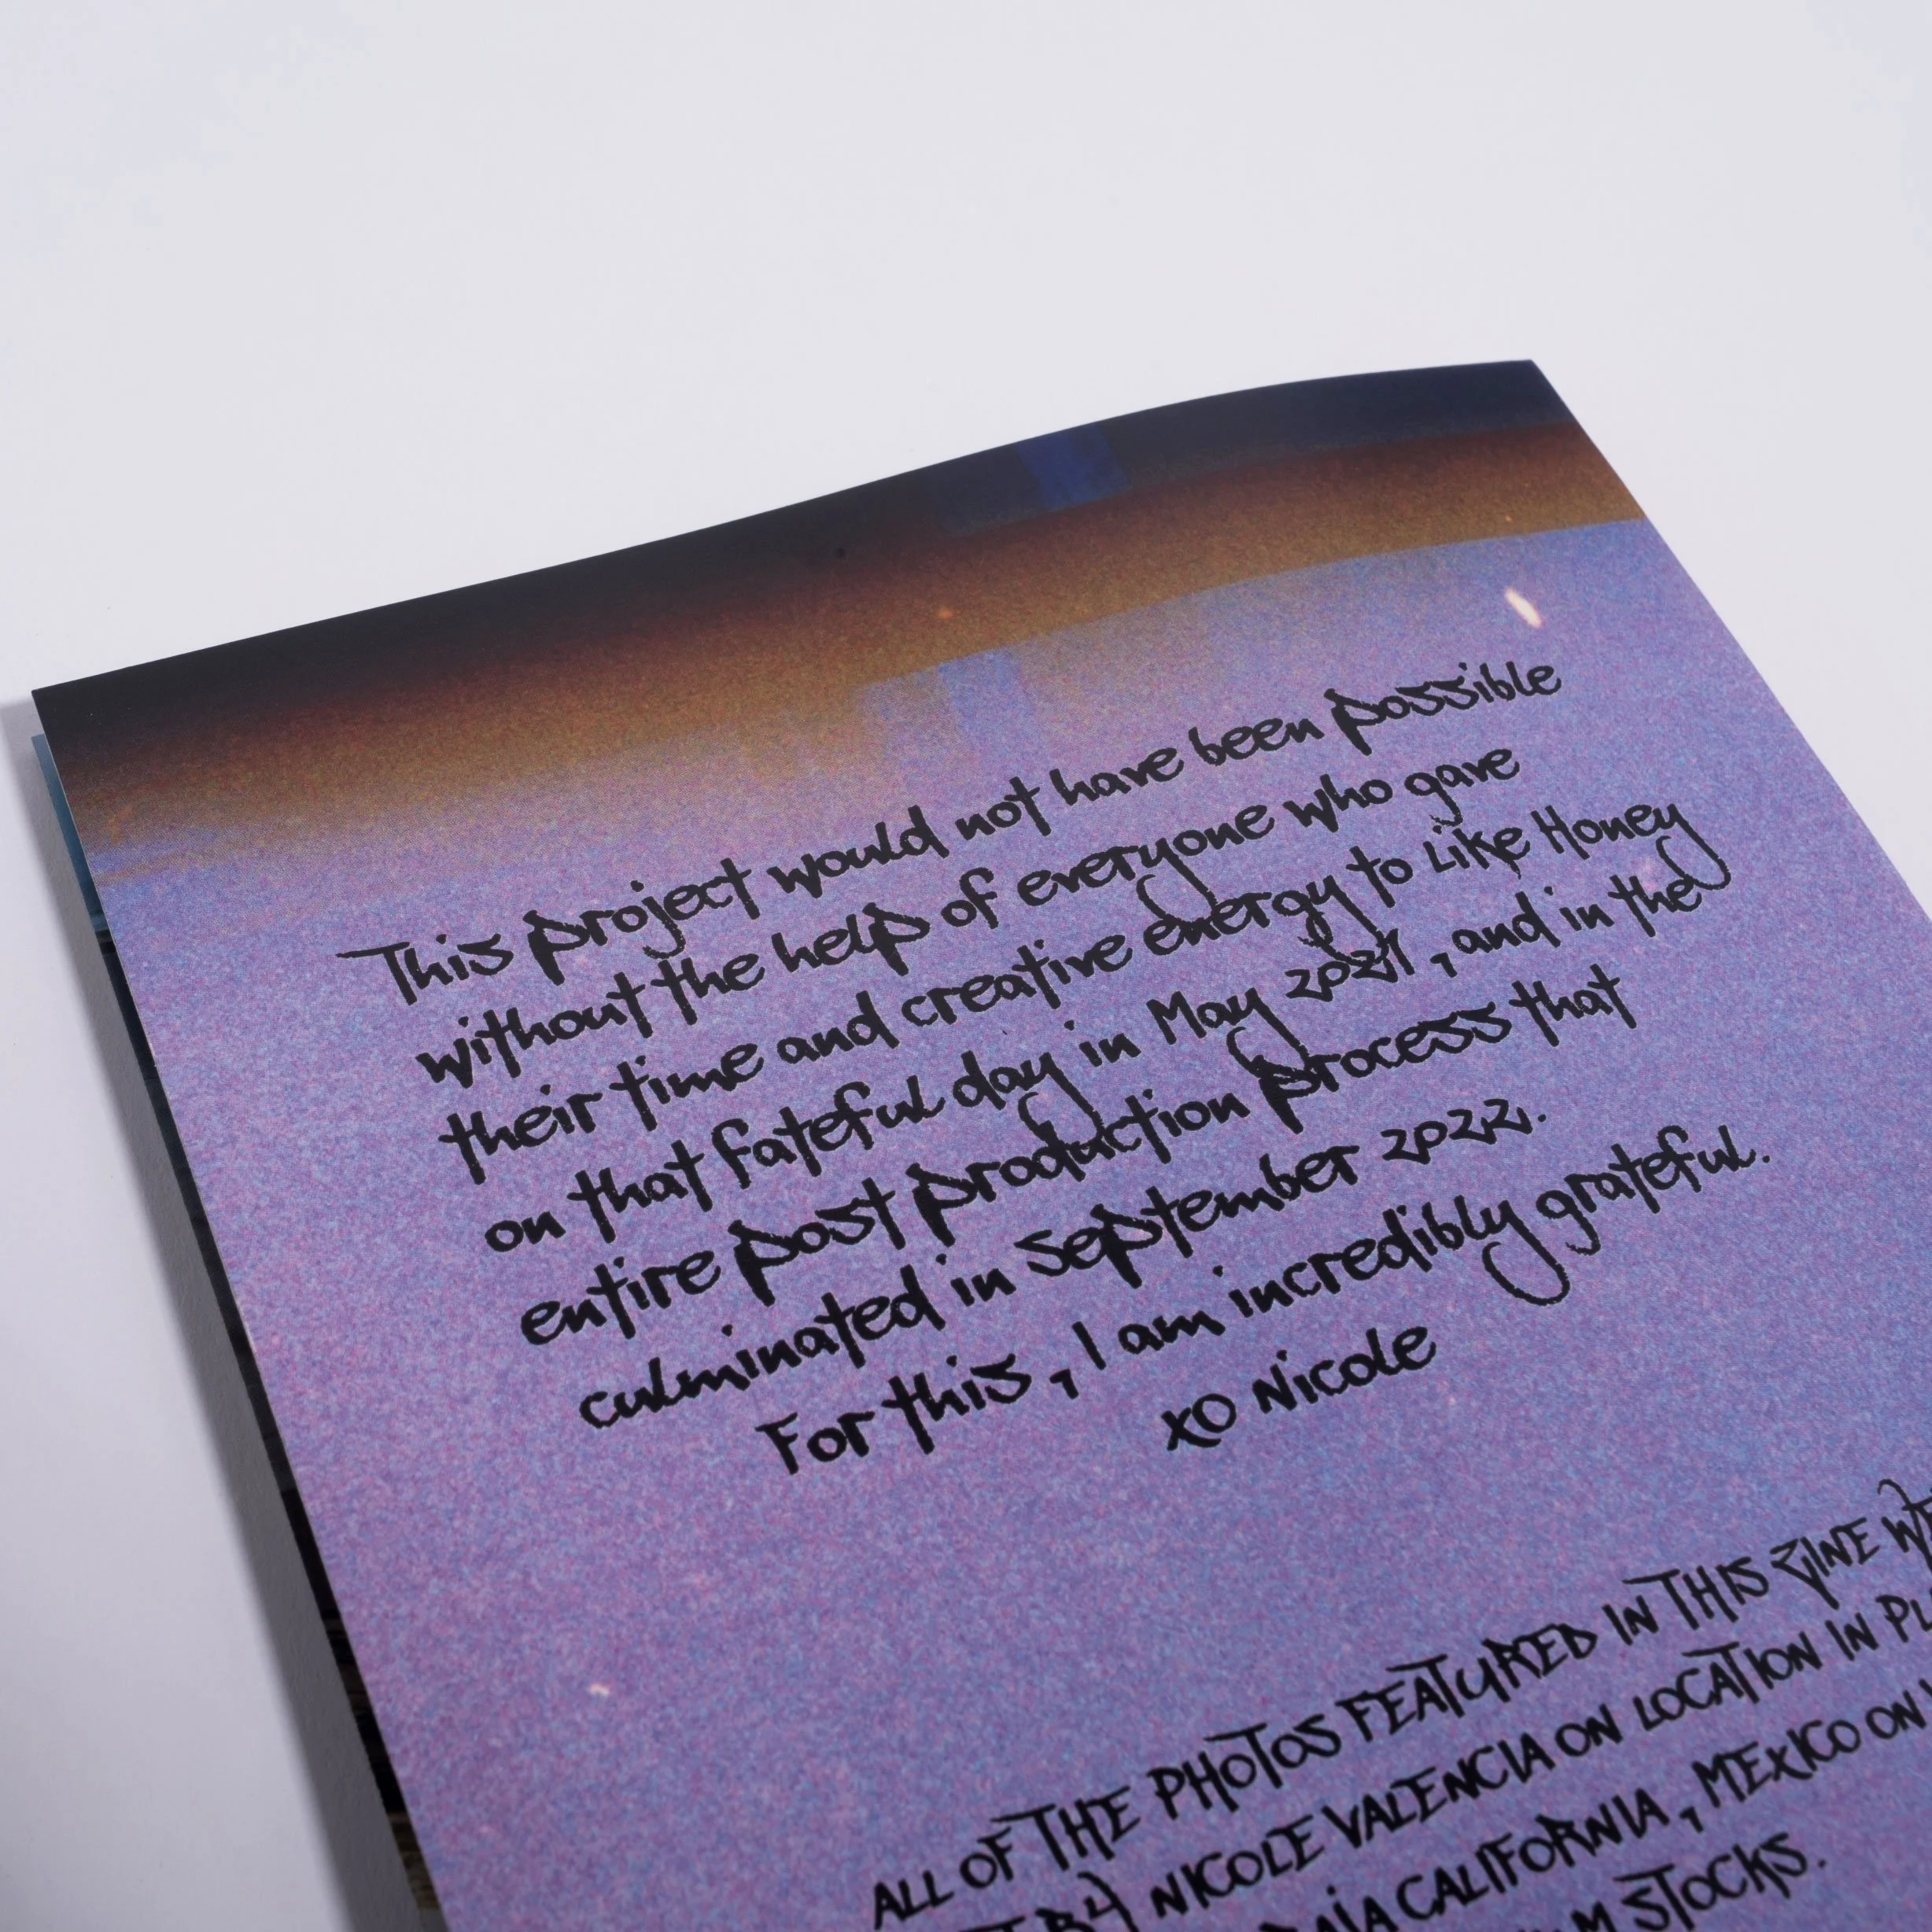 This project would not have been possible
without the help of everyone who gave
their time and creative energy to Like Honey
on that fateful day in May 2021, and in the
entire post production process that
culminated in September 2022.
For this, I am incredibly grateful.
xo Nicole
ALL OF THE PHOTOS FEATURED IN THIS ZINE
BY NICOLE VALENCIA ON LOCATION IN
CALIFORNIA, MEXICO ON
STOCKS.